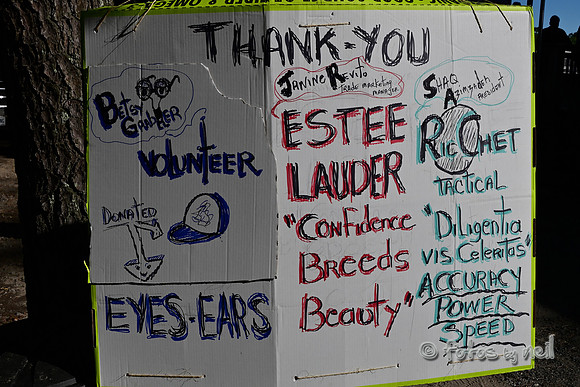 THANK-YOU
BETSY
GAMBLER
VOLUNTEER
DONATED
EYES-EARS
JANINE REVITO
trade marketing
manager
ESTEE
LAUDER
"Confidence
BREEDS
Beauty"
SHAQ
A
president
RICOCHET
TACTICAL
"DiLigentia
vis Celeritas"
ACCURACY
POWER
SPEED
© fotos by neil